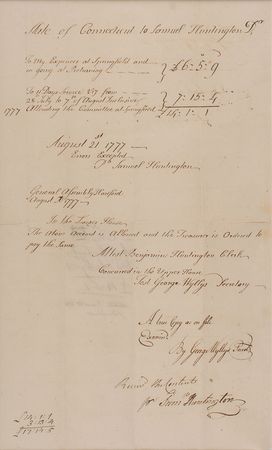 State of Connecticut to Samuel Huntington Dr
To My Expences at Springfield and
in going & Returning
£6: 5: 9
To 11 Days Service at from
28 July to 7th of August Inclusive
1777 Attending the Committee at Springfield
7: 15: 4
£14: 1: 1
August 21st 1777
Errors Excepted
Pr Samuel Huntington
General Assembly Hartford
August 1777
In the Lower House
The above Account is Allowed and the Treasurer is Ordered to
pay the Same
Attest Benjamin Huntington Clerk
Concurred in the Upper House
Test George Wyllys Secretary
A true Copy as on file
Examind
By George Wyllys Secret
Received the Contents
pr Saml Huntington
£14: 1: 1
3: 13: 4
£17: 14: 5